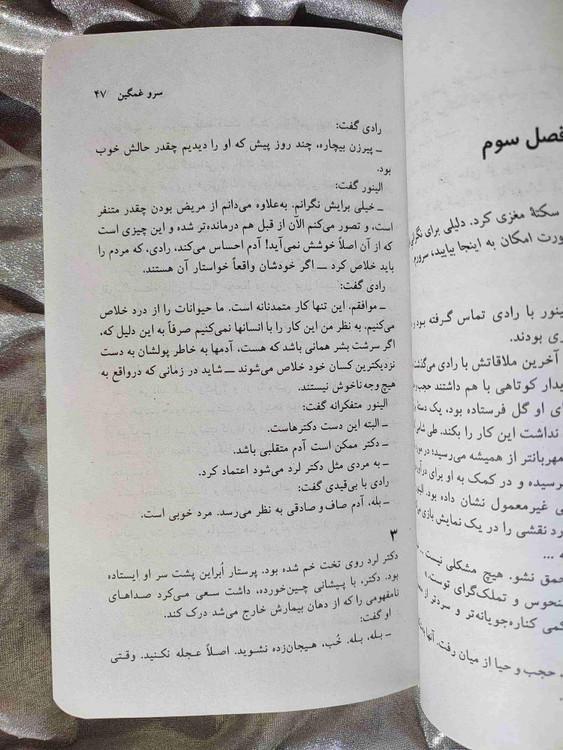 فصل سوم
سکتهٔ مغزی کرد. دلیلی برای نگرانی
صورت امکان به اینجا بیایید، سرورم
لینور با رادی تماس گرفته بود و
ی بودند.
آخرین ملاقاتش با رادی می‌گذشت
یدار کوتاهی با هم داشتند
ای او گل فرستاده بود. یک دسته
نداشت این کار را بکند. طی
مهربانتر از همیشه می‌رسید؛
رسیده و در کمک به او برای
ی غیرمعمول نشان داده بود.
رد نقشی را در یک نمایش بازی
ه ...
حمق نشو. هیچ مشکلی نیست
منحوس و تملک‌گرای توست،
کمی کناره‌جویانه‌تر و سردتر از
. حجب و حیا از میان رفت. آنها
سرو غمگین ۴۷
رادی گفت:
ـ پیرزن بیچاره، چند روز پیش که او را دیدیم چقدر حالش خوب
بود.
الینور گفت:
ـ خیلی برایش نگرانم. به‌علاوه می‌دانم از مریض بودن چقدر متنفر
است، و تصور می‌کنم الآن از قبل هم درمانده‌تر شده و این چیزی است
که از آن اصلاً خوشش نمی‌آید! آدم احساس می‌کند، رادی، که مردم را
باید خلاص کرد ــ اگر خودشان واقعاً خواستار آن هستند.
رادی گفت:
ـ موافقم. این تنها کار متمدنانه است. ما حیوانات را از درد خلاص
می‌کنیم. به نظر من این کار را با انسانها نمی‌کنیم صرفاً به این دلیل که،
اگر سرشت بشر همانی باشد که هست، آدمها به خاطر پولشان به دست
نزدیکترین کسان خود خلاص می‌شوند ــ شاید در زمانی که درواقع به
هیچ وجه ناخوش نیستند.
الینور متفکرانه گفت:
ـ البته این دست دکترهاست.
ـ دکتر ممکن است آدم متقلبی باشد.
ـ به مردی مثل دکتر لرد می‌شود اعتماد کرد.
رادی با بی‌قیدی گفت:
ـ بله، آدم صاف و صادقی به نظر می‌رسد. مرد خوبی است.
۳
دکتر لرد روی تخت خم شده بود. پرستار اُبراین پشت سر او ایستاده
بود. دکتر، با پیشانی چین‌خورده، داشت سعی می‌کرد صداهای
نامفهومی را که از دهان بیمارش خارج می‌شد درک کند.
او گفت:
ـ بله، بله. خُب، هیجان‌زده نشوید. اصلاً عجله نکنید. وقتی